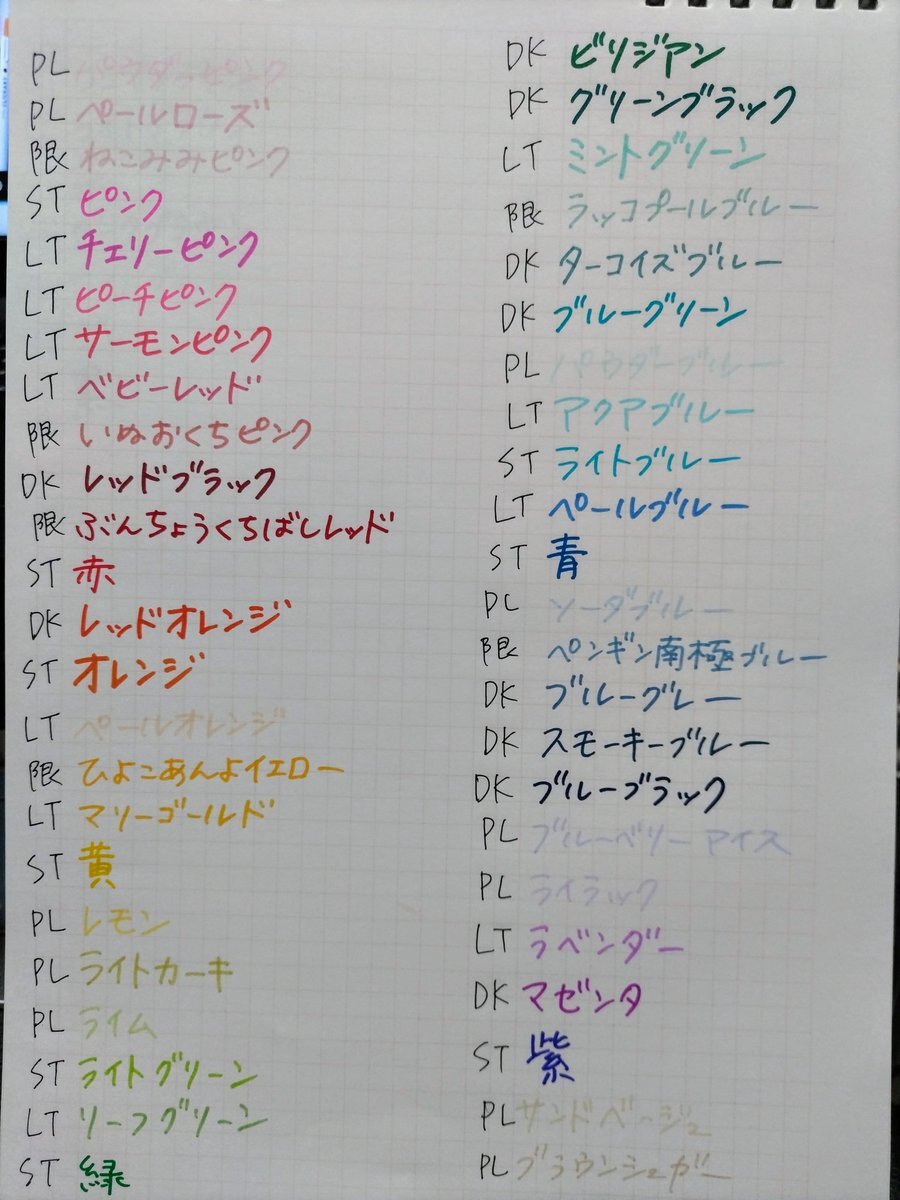 PL パウダーピンク
PL ペールローズ
限 ねこみみピンク
ST ピンク
LT チェリーピンク
LT ピーチピンク
LT サーモンピンク
LT ベビーレッド
限 いぬおくちピンク
DK レッドブラック
限 ぶんちょうくちばしレッド
ST 赤
DK レッドオレンジ
ST オレンジ
LT ペールオレンジ
限 ひよこあんよイエロー
LT マリーゴールド
ST 黄
PL レモン
PL ライトカーキ
PL ライム
ST ライトグリーン
LT リーフグリーン
ST 緑
DK ビリジアン
DK グリーンブラック
LT ミントグリーン
限 ラッコプールブルー
DK ターコイズブルー
DK ブルーグリーン
PL パウダーブルー
LT アクアブルー
ST ライトブルー
LT ペールブルー
ST 青
PL ソーダブルー
限 ペンギン南極ブルー
DK ブルーグレー
DK スモーキーブルー
DK ブルーブラック
PL ブルーベリーアイス
PL ライラック
LT ラベンダー
DK マゼンタ
ST 紫
PL サンドベージュ
PL ブラウンシュガー